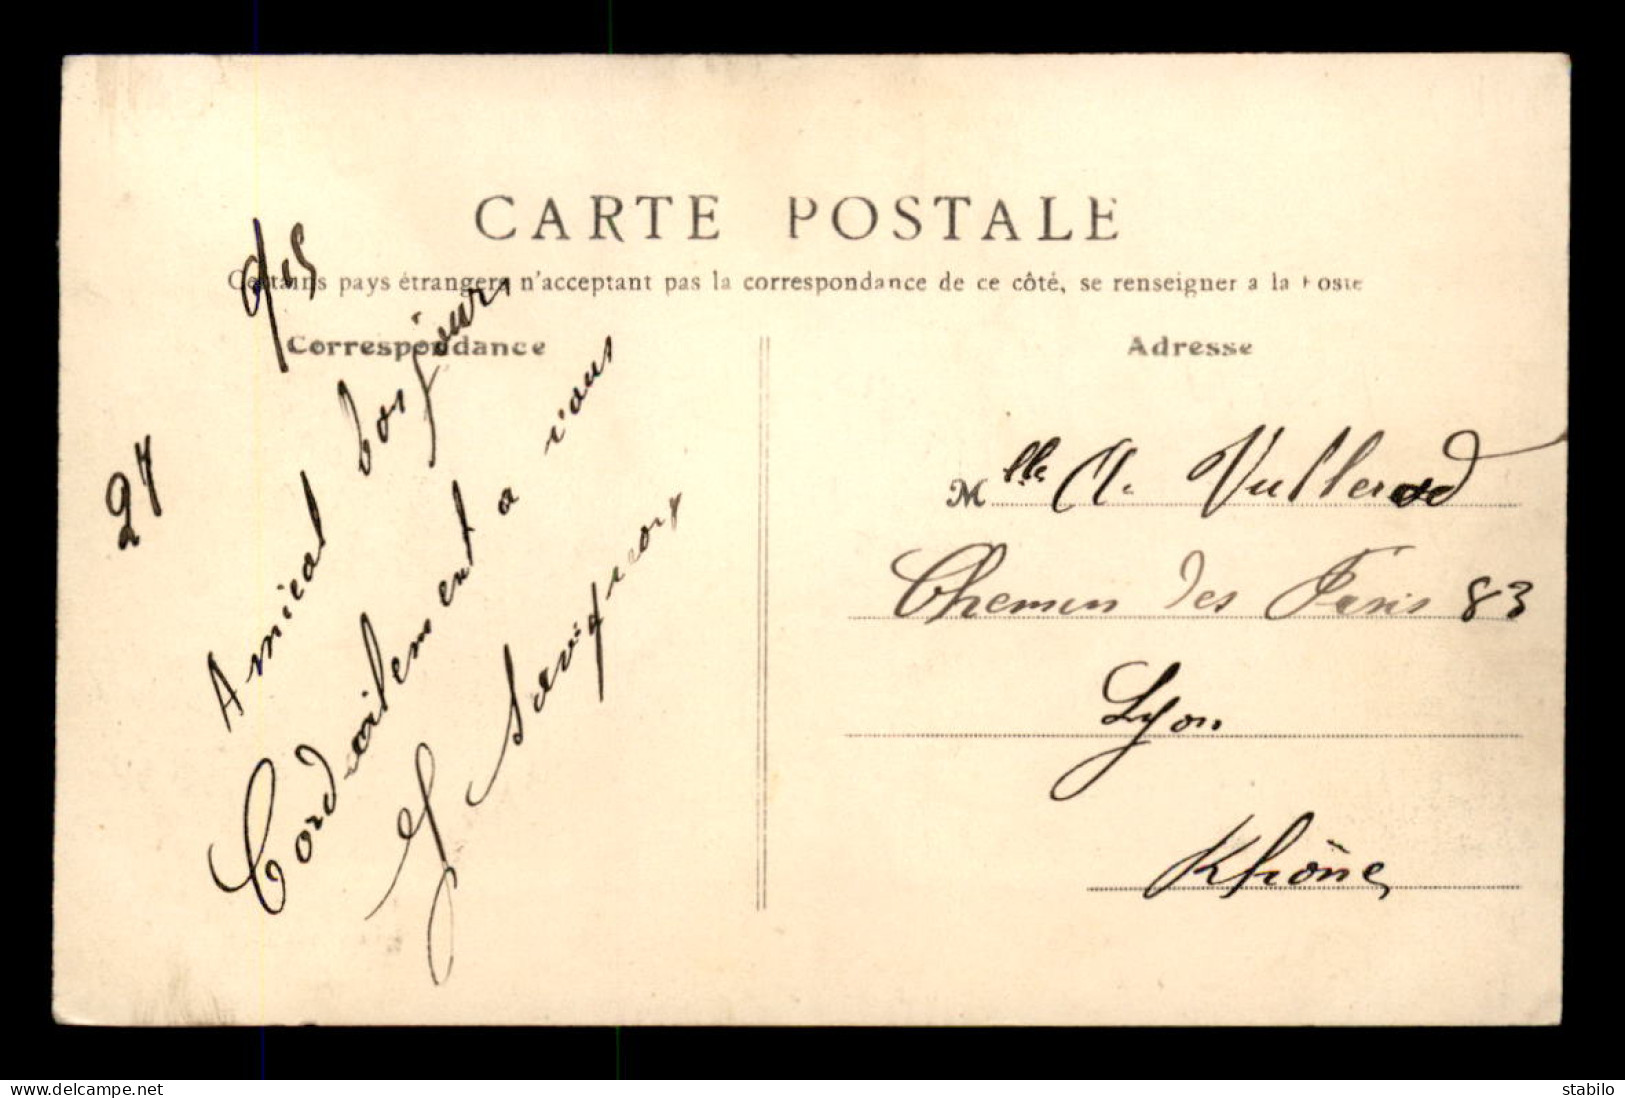 CARTE POSTALE
Certains pays étrangers n'acceptant pas la correspondance de ce côté, se renseigner a la Poste
Correspondance
27
Amical bonjours
Cordialement a vous
Adresse
Mlle A.
Chemin des Pins 83
Lyon
Rhône
www.delcampe.net
stabilo